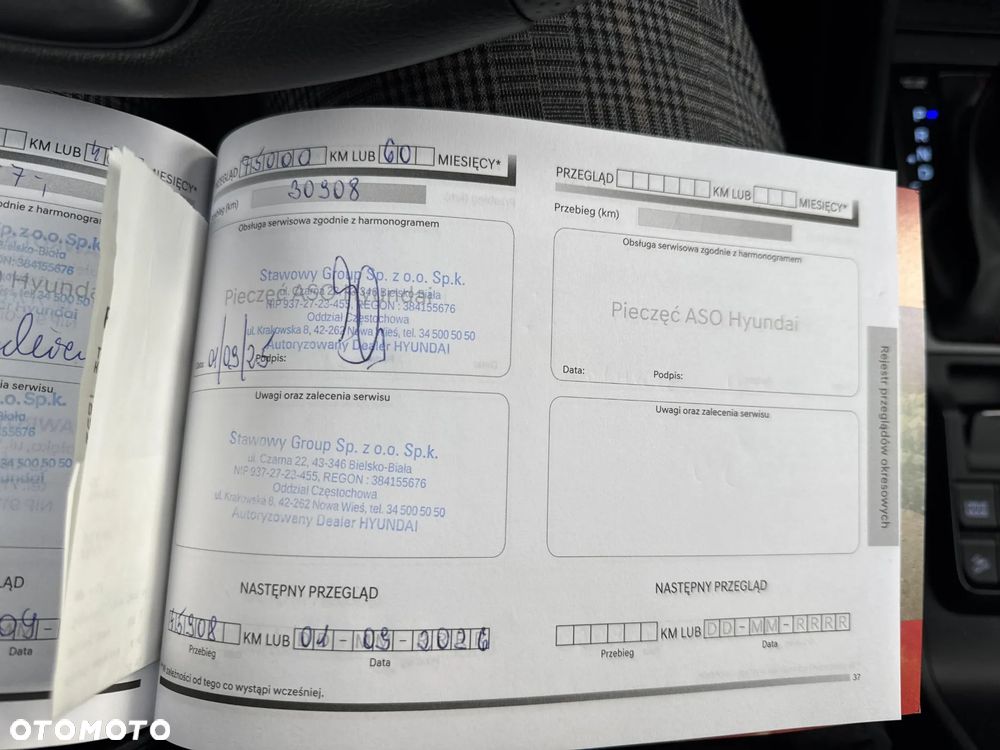 KM LUB
MIESIĘCY*
PRZEGLĄD 75000 KM LUB 60 MIESIĘCY*
30908
Obsługa serwisowa zgodnie z harmonogramem
Stawowy Group Sp. z o.o. Sp.k.
ul. Czarna 22, 43-346 Bielsko-Biała
Pieczęć ASO Hyundai
NIP 937-27-23-455, REGON : 384155676
Oddział Częstochowa
ul. Krakowska 8, 42-262 Nowa Wieś, tel. 34 500 50 50
Autoryzowany Dealer HYUNDAI
Data: 01/09/25 Podpis:
Uwagi oraz zalecenia serwisu
Stawowy Group Sp. z o.o. Sp.k.
ul. Czarna 22, 43-346 Bielsko-Biała
NIP 937-27-23-455, REGON : 384155676
Oddział Częstochowa
ul. Krakowska 8, 42-262 Nowa Wieś, tel. 34 500 50 50
Autoryzowany Dealer HYUNDAI
NASTĘPNY PRZEGLĄD
KM LUB 01-09-2026
Przebieg
Data
*W zależności od tego co wystąpi wcześniej.
PRZEGLĄD KM LUB MIESIĘCY*
Przebieg (km)
Obsługa serwisowa zgodnie z harmonogramem
Pieczęć ASO Hyundai
Data: Podpis:
Uwagi oraz zalecenia serwisu
NASTĘPNY PRZEGLĄD
KM LUB DD-MM-RRRR
Przebieg
Data
37
Rejestr przeglądów okresowych
Data
P
R
N
D
OTOMOTO